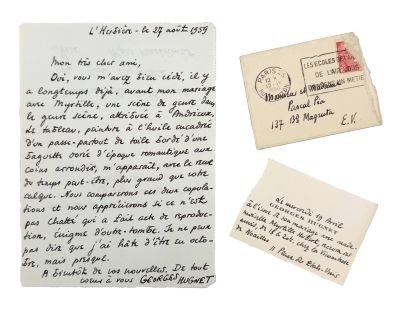 L'Herbière - le 27 août 1959
Mon très cher ami,
Oui, vous m'avez bien cédé, il y
a longtemps déjà, avant mon mariage
avec Myrtille, une scène de genre dans
le genre scène, attribuée à Andrieux.
Le tableau, peinture à l'huile encadrée
d'un passe-partout de toile bordé d'une
baguette dorée d'époque romantique aux
coins arrondis, m'apparaît, avec le recul
du temps peut-être, plus grand que votre
calque. Nous comparerons ces deux copula-
tions et nous apprécierons si ce n'est
pas Chatté qui a fait acte de reproduc-
tion, énigme d'outre-tombe. Je ne peux
pas dire que j'ai hâte d'être en octo-
bre, mais presque.
A bientôt de vos nouvelles. De tout
cœur à vous GEORGES HUGNET
PARIS
LES ECOLES
DE L'AIR
UN METIER
Monsieur et Madame
Pascal Pia
137 Bd Magenta
E.V.
Le mercredi 19 Avril
GEORGES HUGNET
à l'occasion de son mariage avec made-
moiselle Myrtille Hubert, recevra ses
amis, de 18 à 20h, chez la Vicomtesse
de Noailles
11 Place des États-Unis